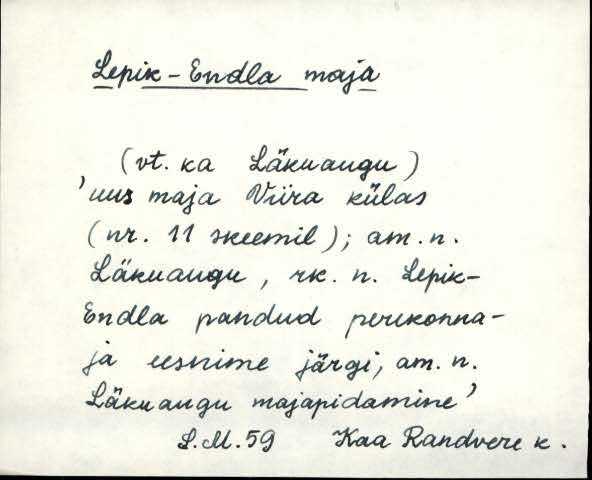 Lepik-Endla maja
(vt. ka Läkuaugu)
'uus maja Viira külas
(nr. 11 skeemil); am. n.
Läkuaugu, rk. n. Lepik-
Endla pandud perekonna-
ja eesnime järgi, am. n.
Läkuaugu majapidamine'
L.M. 59 Kaa Randvere k.